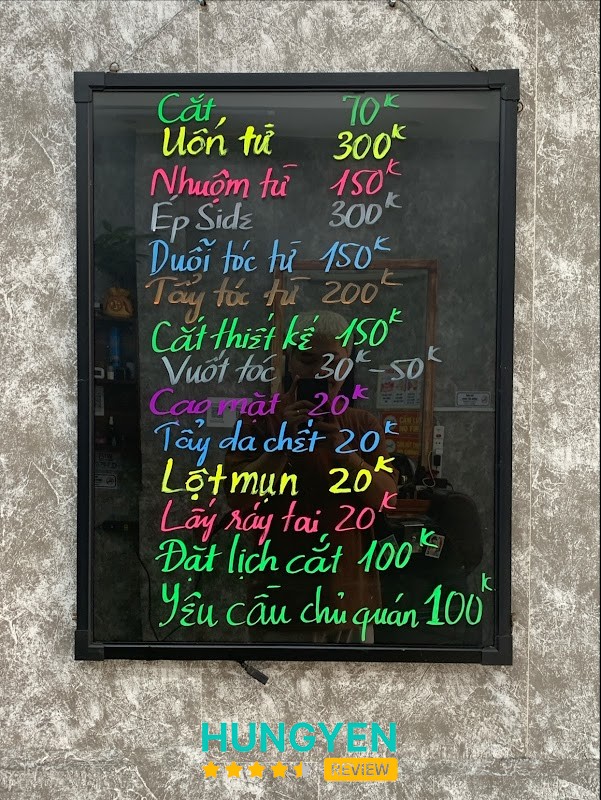 Cắt 70K
Uốn từ 300K
Nhuộm từ 150K
Ép Side 300K
Duỗi tóc từ 150K
Tẩy tóc từ 200K
Cắt thiết kế 150K
Vuốt tóc 30K-50K
Cạo mặt 20K
Tẩy da chết 20K
Lột mụn 20K
Lấy ráy tai 20K
Đặt lịch cắt 100K
Yêu cầu chủ quán 100K
HUNGYEN
REVIEW